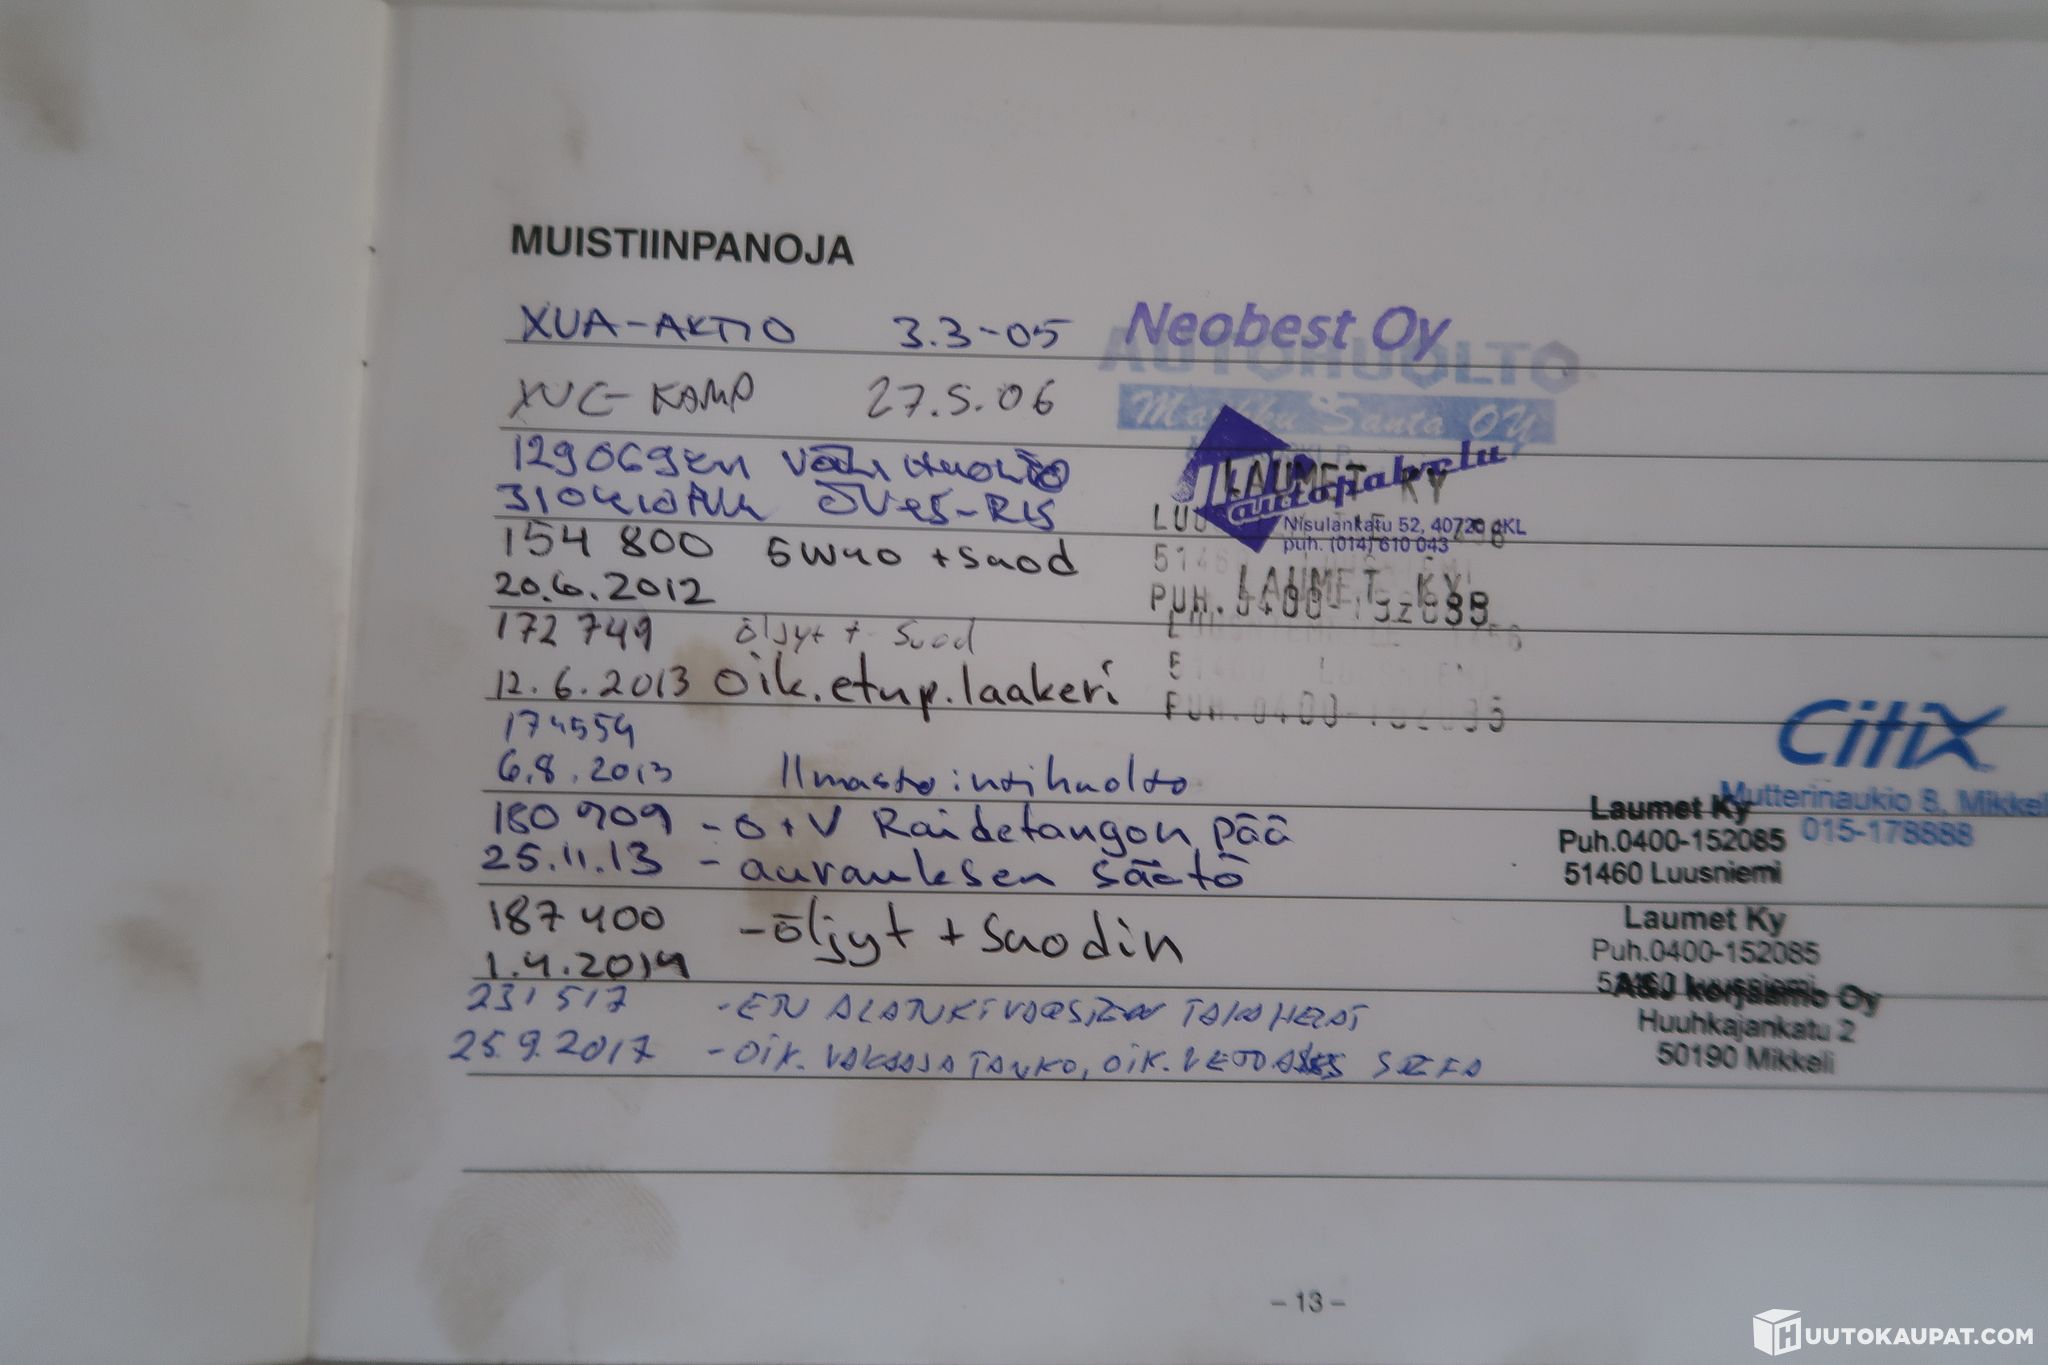 MUISTIINPANOJA
XUA-AKTIO 3.3-05 Neobest Oy
AUTOHUOLTO
XUG-KAMP 27.5.06 Santa OY
129069km
autopalvelu
LAUMET KY
Nisulankatu 52, 40720 JKL
puh. (014) 610 043
154 800 + suod
LAUMET KY
20.6.2012 PUH.
172 749 öljyt + suod
12.6.2013 oik.etup.laakeri
PUH.0400-152085
174554
CitiX
6.8.2013 Ilmastointihuolto
Mutterinaukio 8, Mikkeli
015-178888
180 909 - O+V Raidetangon pää
25.11.13 - aurauksen säätö
Laumet Ky
Puh.0400-152085
51460 Luusniemi
187 400 - öljyt + suodin
1.4.2014
Laumet Ky
Puh.0400-152085
51460 Luusniemi
231517 - ETU ALATUKIVARSIEN TAKAHELAT
25.9.2017 - OIK. VAKAAJATANKO, OIK.
A&J korjaamo Oy
Huuhkajankatu 2
50190 Mikkeli
- 13 -
HUUTOKAUPAT.COM